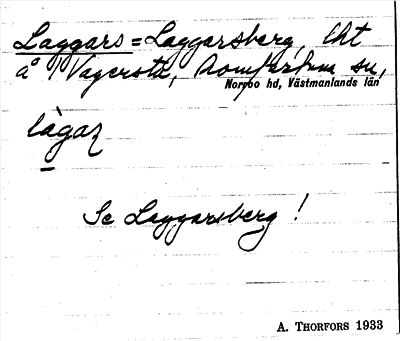 Laggars = Laggarsberg, lht
å Vagersta, Romfartuna sn,
Norrbo hd, Västmanlands län
làgaz
Se Laggarsberg!
A. THORFORS 1933